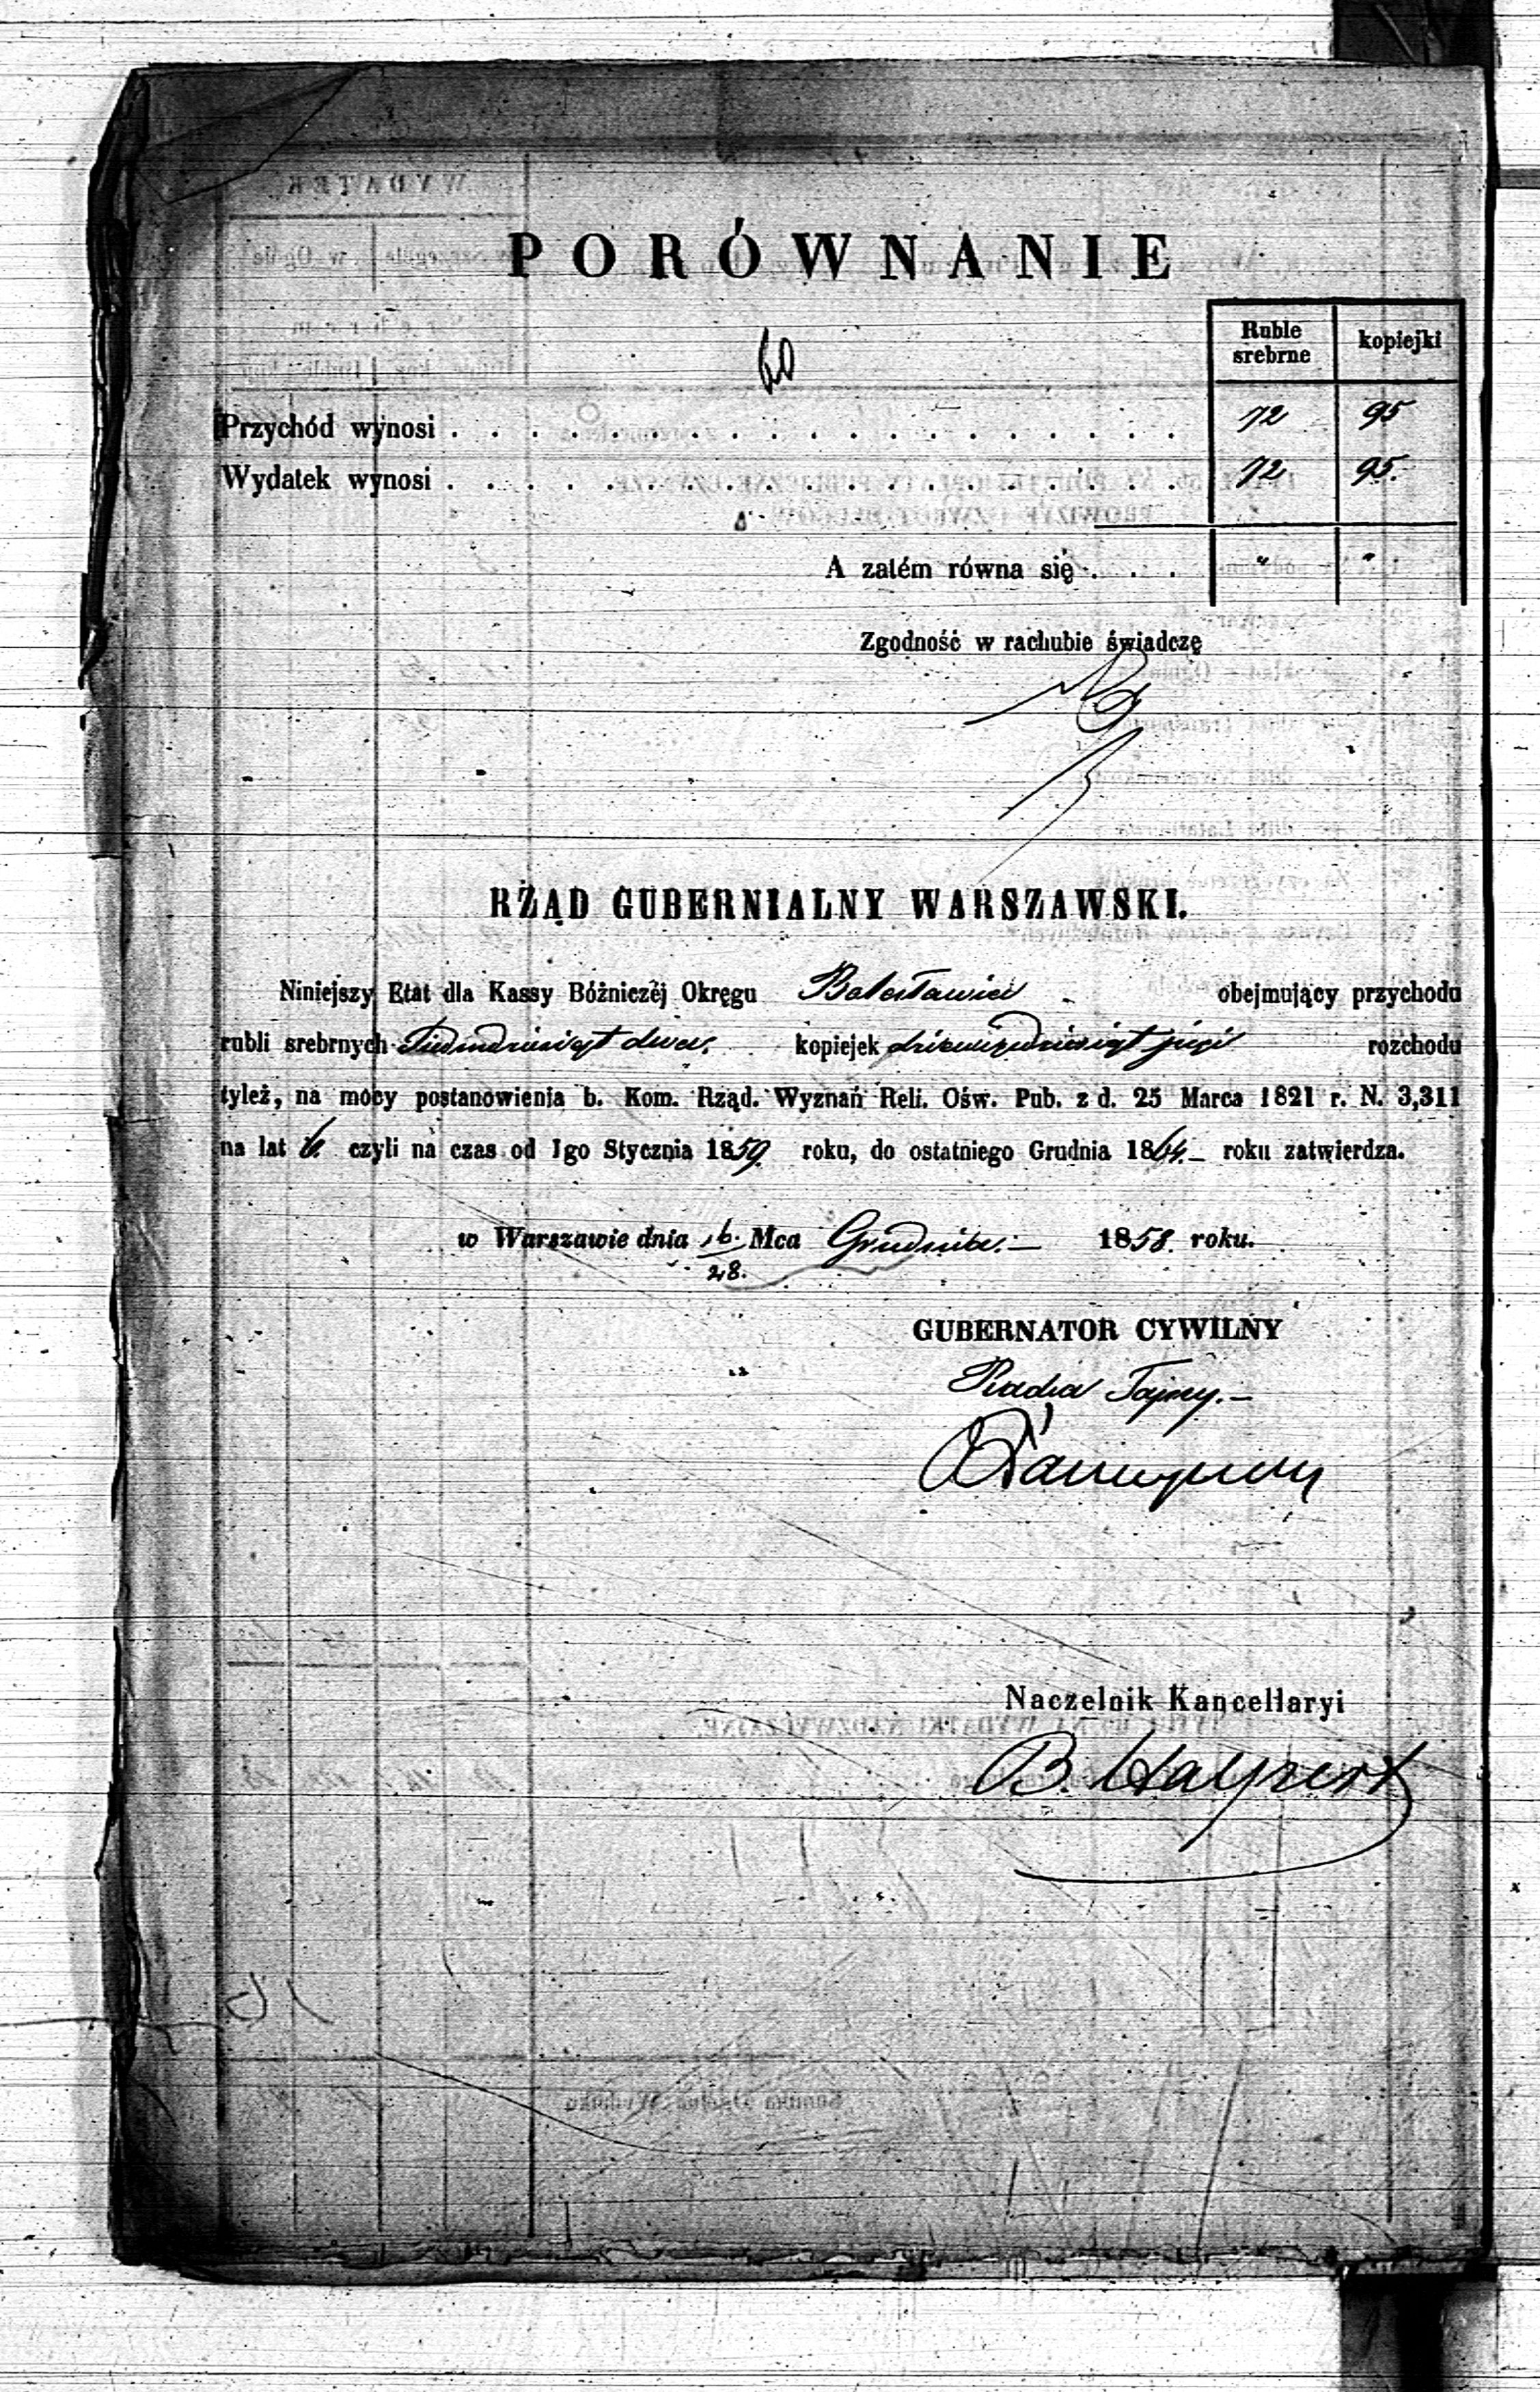 PORÓWNANIE
Ruble srebrne kopiejki
Przychód wynosi . . . . . . . . . . . . . . . . . . . 72 95
Wydatek wynosi . . . . . . . . . . . . . . . . . . . 72 95.
A zatém równa się . . . . " "
Zgodność w rachubie świadczę
RZĄD GUBERNIALNY WARSZAWSKI.
Niniejszy Etat dla Kassy Bóżniczéj Okręgu Bolesławiec obejmujący przychodu
rubli srebrnych Siedmdziesiąt dwa. kopiejek dziewięćdziesiąt pięć rozchodu
tyleż, na mocy postanowienia b. Kom. Rząd. Wyznań Reli. Ośw. Pub. z d. 25 Marca 1821 r. N. 3,311
na lat 6. czyli na czas od 1go Stycznia 1859. roku, do ostatniego Grudnia 1864.– roku zatwierdza.
w Warszawie dnia 16./28. Mca Grudnia.– 1858. roku.
GUBERNATOR CYWILNY
Radca Tajny.–
Naczelnik Kancellaryi
B. Halpert
WYDATEK
w Ogóle
Summa Ogólna Wydatku